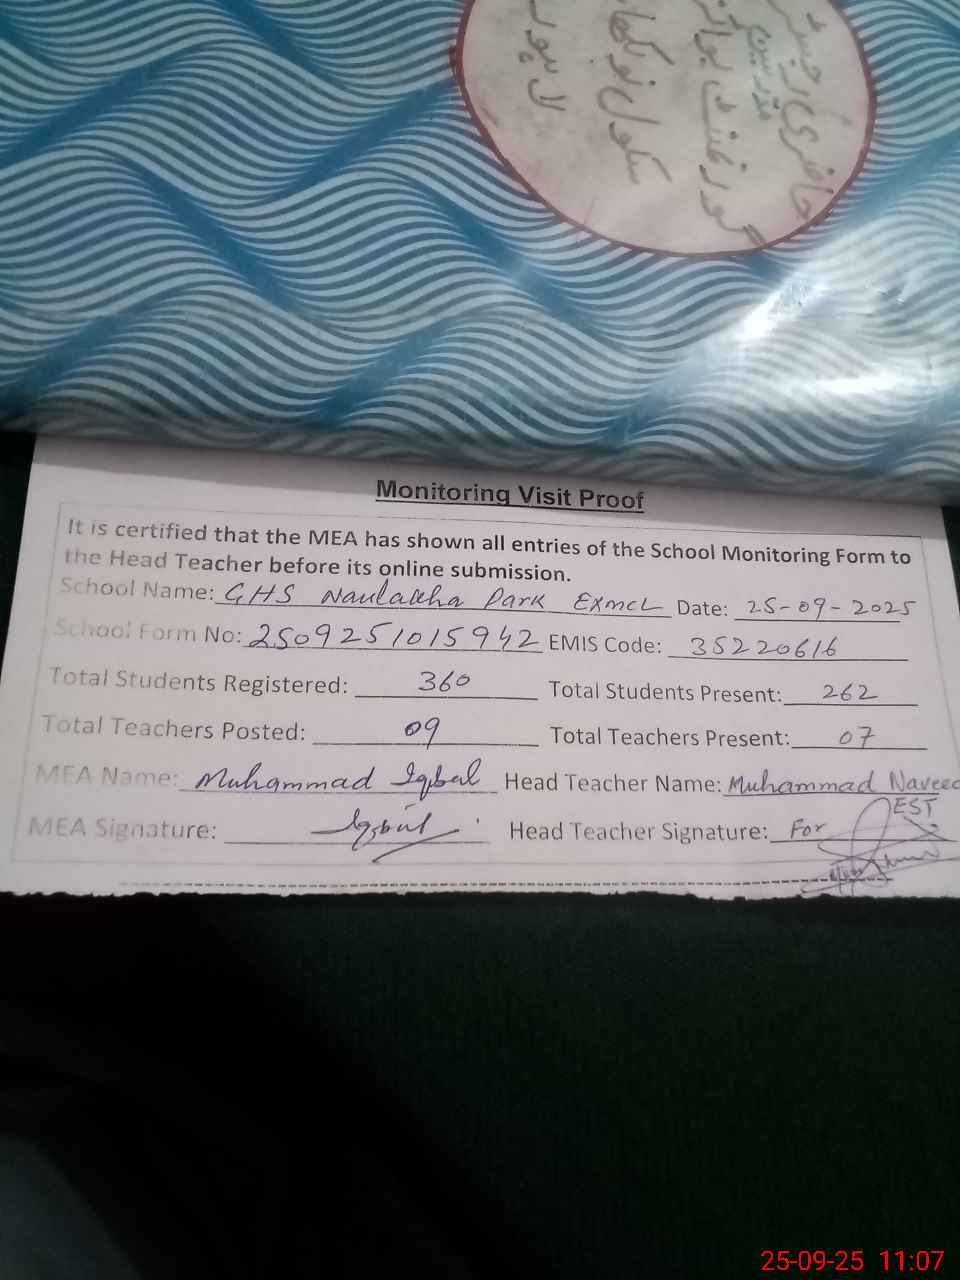 حاضری رجسٹر
مدرسین
گورنمنٹ بوائز
سکول نولکھا
لاہور
Monitoring Visit Proof
It is certified that the MEA has shown all entries of the School Monitoring Form to
the Head Teacher before its online submission.
School Name: GHS Naulakha Park EXMCL Date: 25-09-2025
School Form No: 250925101 5942 EMIS Code: 35220616
Total Students Registered: 360 Total Students Present: 262
Total Teachers Posted: 09 Total Teachers Present: 07
MEA Name: Muhammad Iqbal Head Teacher Name: Muhammad Naveed
EST
MEA Signature: Iqbal Head Teacher Signature: For
25-09-25 11:07